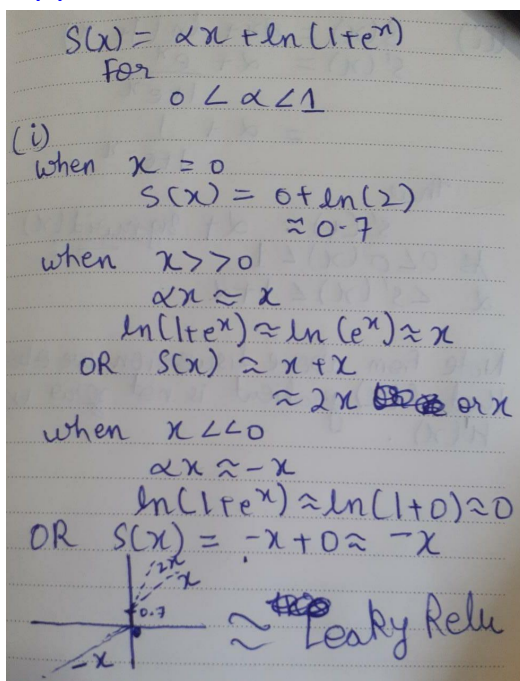 S(x) = αx + ln(1+eˣ)
For
0 < α < 1
(i)
when x = 0
S(x) = 0 + ln(2)
≈ 0.7
when x>>0
αx ≈ x
ln(1+eˣ) ≈ ln(eˣ) ≈ x
OR S(x) ≈ x + x
≈ 2x or x
when x <<0
αx ≈ -x
ln(1+eˣ) ≈ ln(1+0) ≈ 0
OR S(x) = -x + 0 ≈ -x
2x
x
0.7
-x
≈ Leaky Relu